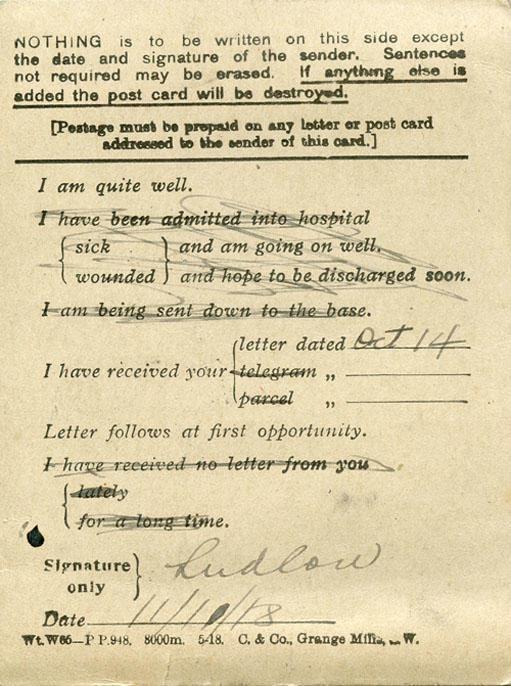 NOTHING is to be written on this side except
the date and signature of the sender. Sentences
not required may be erased. If anything else is
added the post card will be destroyed.
[Postage must be prepaid on any letter or post card
addressed to the sender of this card.]
I am quite well.
I have been admitted into hospital
sick and am going on well.
wounded and hope to be discharged soon.
I am being sent down to the base.
letter dated Oct 14
I have received your telegram „
parcel „
Letter follows at first opportunity.
I have received no letter from you
lately
for a long time.
Signature
only Ludlow
Date 11/10/18
Wt.W65—P P.948. 8000m. 5-18. C. & Co., Grange Mills, W.